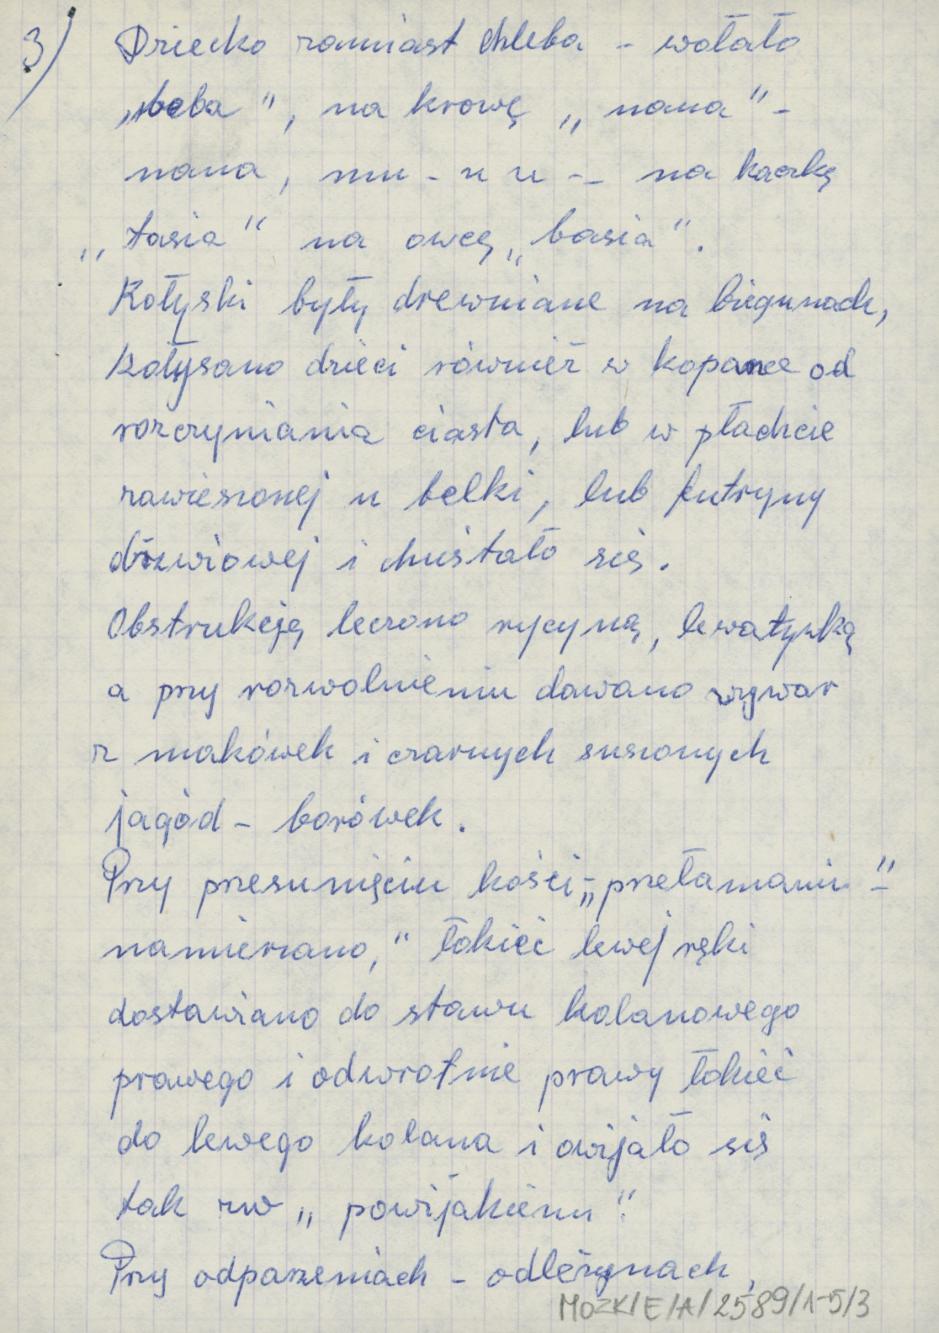 3) Dziecko zamiast chleba - wołało
„beba", na krowę „nana" -
nana, mu - u u -- na kaczkę
„tasia" na owcę „basia".
Kołyski były drewniane na biegunach,
Kołysano dzieci również w kopance od
rozczyniania ciasta, lub w płachcie
zawieszonej u belki, lub futryny
drzwiowej i chuśtało się.
Obstrukcję leczono rycyną, lewatywką
a przy rozwolnieniu dawano wywar
z makówek i czarnych suszonych
jagód - borówek.
Przy przesunięciu kości - „przełamaniu" -
namierzano," łokieć lewej ręki
dostawiano do stawu kolanowego
prawego i odwrotnie prawy łokieć
do lewego kolana i owijało się
tak zw „powijakiem".
Przy odparzeniach - odleżynach,
MOZK/E/A/2589/1-5/3